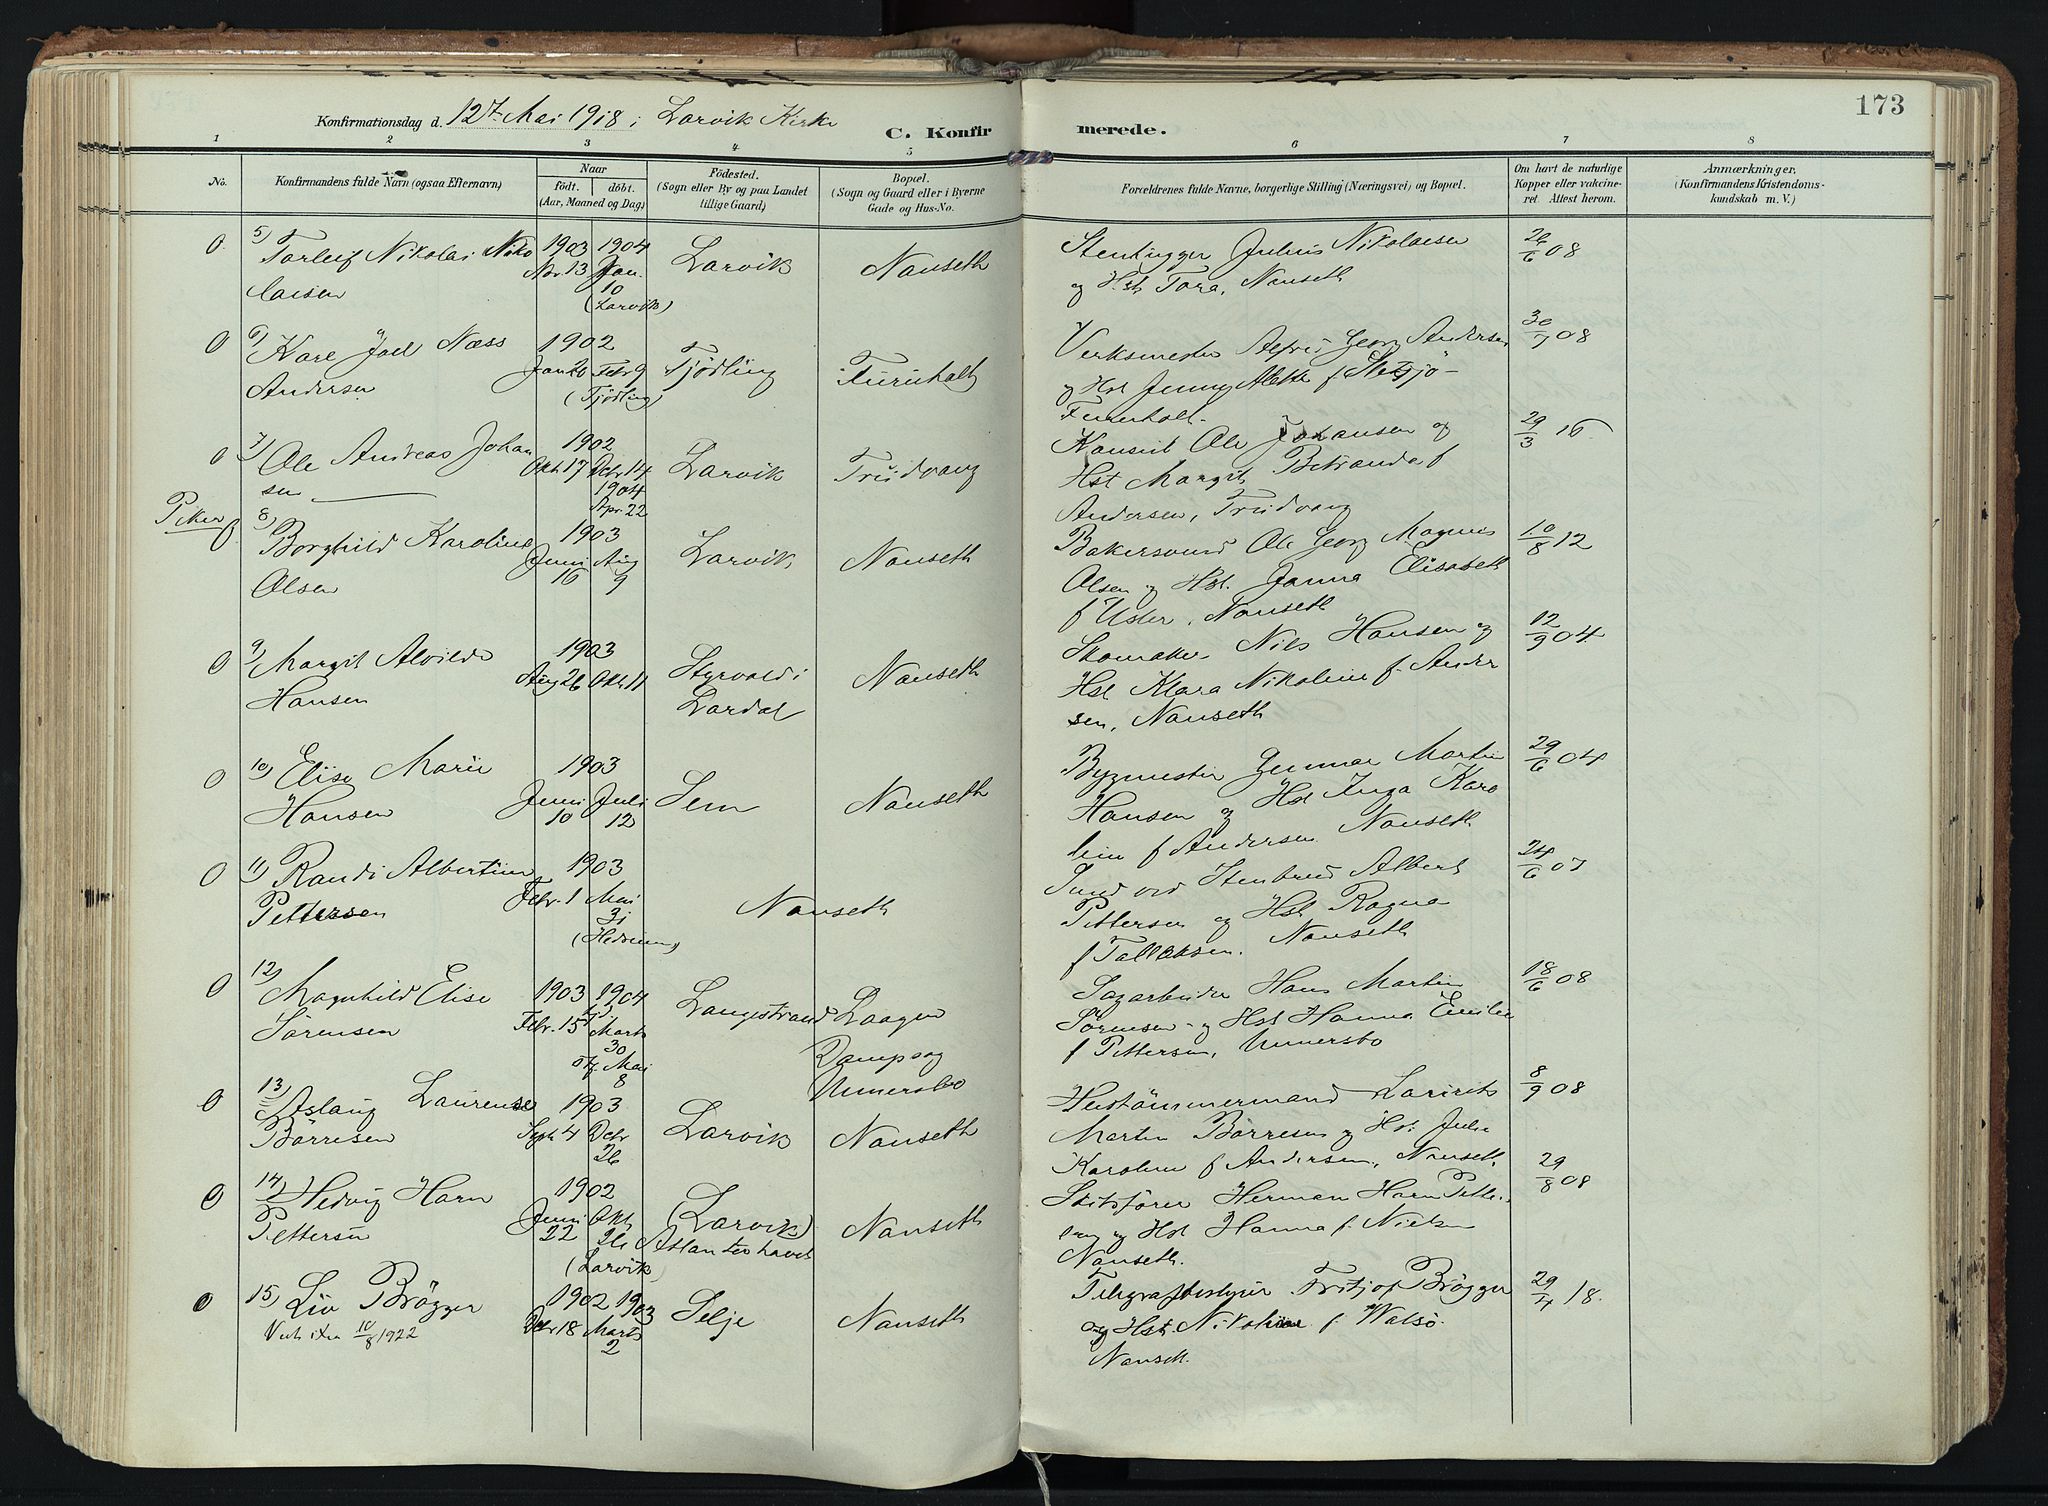 173
Konfirmationsdag d. 12te Mai 1918 i Larvik Kirke
C. Konfirmerede.
1 2 3 4 5 6 7 8
No.
Konfirmandens fulde Navn (ogsaa Efternavn)
Naar
födt. döbt.
(Aar, Maaned og Dag)
Födested.
(Sogn eller By og paa Landet
tillige Gaard)
Bopæl.
(Sogn og Gaard eller i Byerne
Gade og Hus-No.
Forældrenes fulde Navne, borgerlige Stilling (Næringsvei) og Bopæl.
Om havt de naturlige
Kopper eller vakcine-
ret. Attest herom.
Anmærkninger.
(Konfirmandens Kristendoms-
kundskab m. V.)
0 5) Torleif Nikolai Niko 1903 1904 Larvik Nanseth Stenhugger Julius Nikolaisen 26/6 08
laisen Nov. 13 Jan. 10 (Larvik) og Hst Tora, Nanseth
0 6) Kare Joel Næss 1902 Tjödling Furuholt Verksmester Alfred Georg Andersen 30/7 08
Andersen Jan 20 Febr 9 (Tjödling) og Hst Jenny Alette f.
Furuholt.
0 7) Ole Andreas Johan 1902 Larvik Triidvang Ole Johansen og 29/3 16
sen Okt. 17 Debr 14 Hst Margit f
1904 Apr. 22 Andersen, Triidvang
Piker
8) Borghild Karoline 1903 Larvik Nanseth Bakersvend Ole Georg Magnus 10/8 12
Olsen Juni 16 Aug 9 Olsen og Hst. Janna Elisabeth
f Uster, Nanseth
0 9) Margit Alvilde 1903 Styrvold i Nanseth Skomaker Nils Hansen og 12/9 04
Hansen Aug 26 Okt. 11 Lardal Hst Klara Nikoline f. Ander
sen, Nanseth
0 10) Elise Marie 1903 Sem Nanseth Bygmester Gunnar Martin 29/6 04
Hansen Juni 10 Juli 12 Hansen og Hst Inga Karo
line f Andersen Nanseth
0 11) Randi Albertine 1903 Nanseth Albert 24/6 07
Pettersen Febr. 1 Mai 31 (Hedrum) Pettersen og Hst Ragna
f Tallaksen. Nanseth
0 12) Magnhild Elise 1903 1904 Langestrand Laagen Sagarbeider Hans Martin 18/6 08
Sörensen Febr. 15 Marts 30 Dampsag Sörensen og Hst Hanna Emilie
Mai 8 Unnersbo f Pettersen, Unnersbo
0 13) Aslaug Laurense 1903 Larvik Nanseth Hustömmermand Laurits 8/9 08
Börresen Sept. 4 Debr 26 Martin Börresen og Hst. Julie
Karoline f Andersen, Nanseth.
0 14) Hedvig Harn 1902 (Larvik) Nanseth Skibsförer Herman Harn Petter- 29/8 08
Pettersen Juni 22 Okt 26 (Larvik) Atlanterhavet sen og Hst Hanna f. Nielsen
Nanseth.
0 15) Liv Brögger 1902 1903 Selje Nanseth Telegrafbestyrer Fritjof Brögger 29/4 18.
10/8 1922 Debr 18 Marts 2 og Hst. Nikoline f. Walsö.
Nanseth.